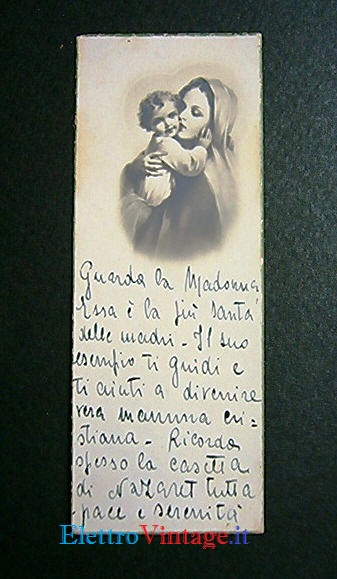 Guarda la Madonna
Essa è la più santa
delle madri - Il suo
esempio ti guidi e
ti aiuti a divenire
vera mamma cri=
stiana - Ricorda
spesso la casetta
di Nazaret tutta
pace e serenità
ElettroVintage.it